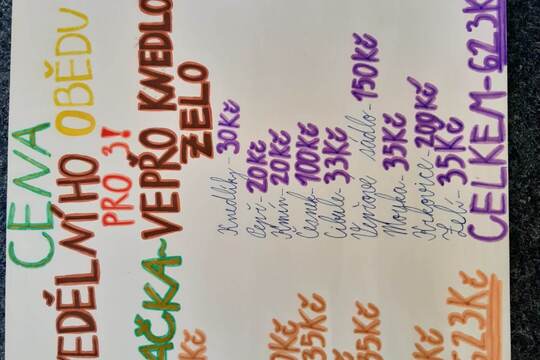 CENA
EDĚLNÍHO OBĚDU
PRO 3!
AČKA~VEPŘO KNEDLO
ZELO
Knedlíky-30Kč
20Kč
Kmín-20Kč
Česnek-100Kč
Cibule-33Kč
Vepřové sádlo-150Kč
Mouka-35Kč
Krkovice-200Kč
Zelí-35Kč
CELKEM-623K
Kč
0Kč
35Kč
35Kč
Kč
23Kč